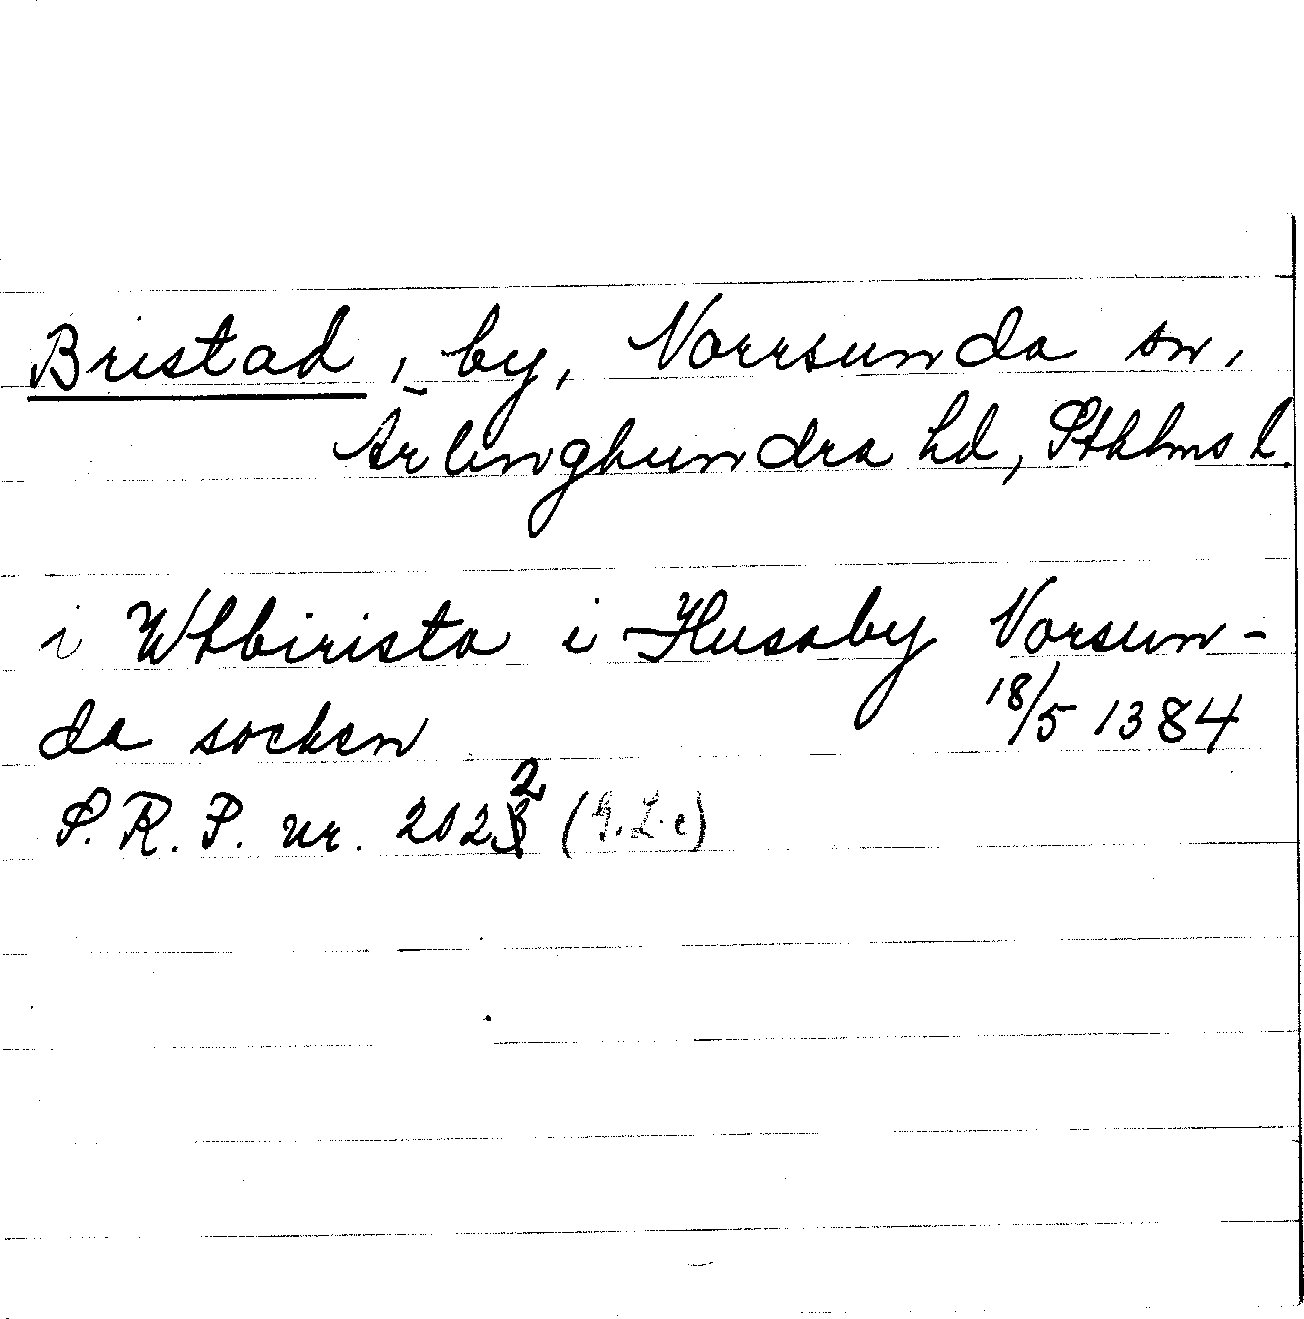 Bristad, by, Norrsunda sn,
Ärlinghundra hd, Sthlms l.
i Wtbirista i Husaby Norsun-
da socken 18/5 1384
S.R.P. nr. 2022